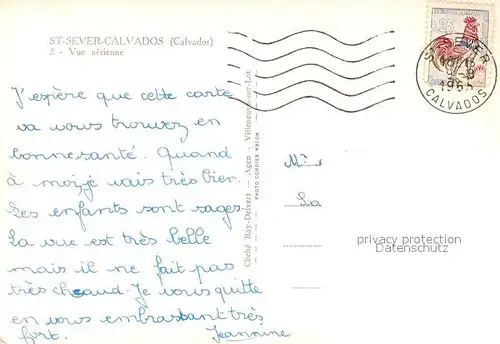 ST-SEVER-CALVADOS (Calvados)
2 - Vue aérienne
J'espère que cette carte
va vous trouvez en
bonne santé. Quand
à moi je vais très bien.
Les enfants sont sages.
La vue est très belle
mais il ne fait pas
très chaud. Je vous quitte
en vous embrassant très
fort. Jeannine
Cliché Ray-Delvert - Agen - Villeneuve-sur-Lot
PHOTO COMBIER MACON
0,25
ST SEVER
1965
CALVADOS
La
privacy protection
Datenschutz